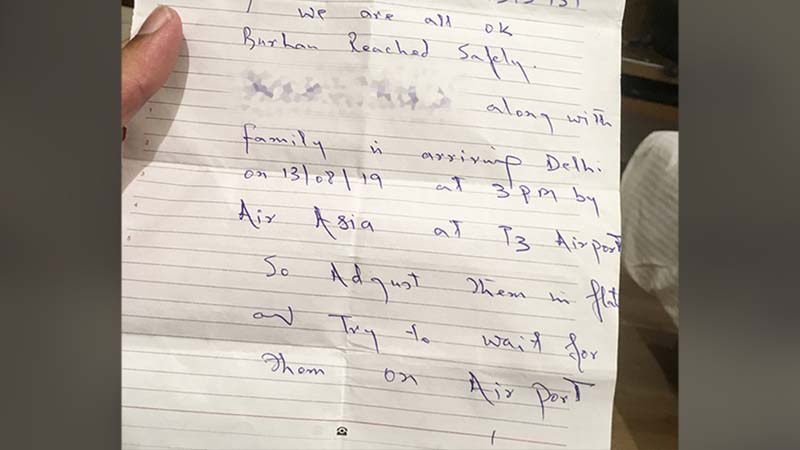 we are all ok
Burhan Reached Safely.
along with
family is arriving Delhi
on 13/08/19 at 3 PM by
Air Asia at T3 Airport
So Adjust them in flat
and Try to wait for
them on Air port